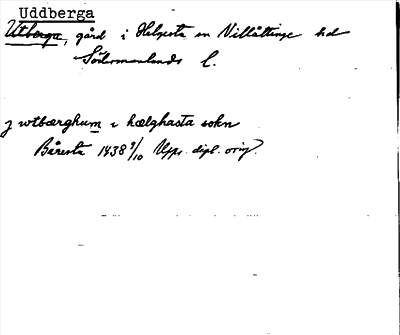 Uddberga
Utberga, gård i Helgesta sn Villåttinge hd
Södermanlands l.
J wtbærghum i hælghasta sokn
Båresta 1438 9/10 Upps. dipl. orig.